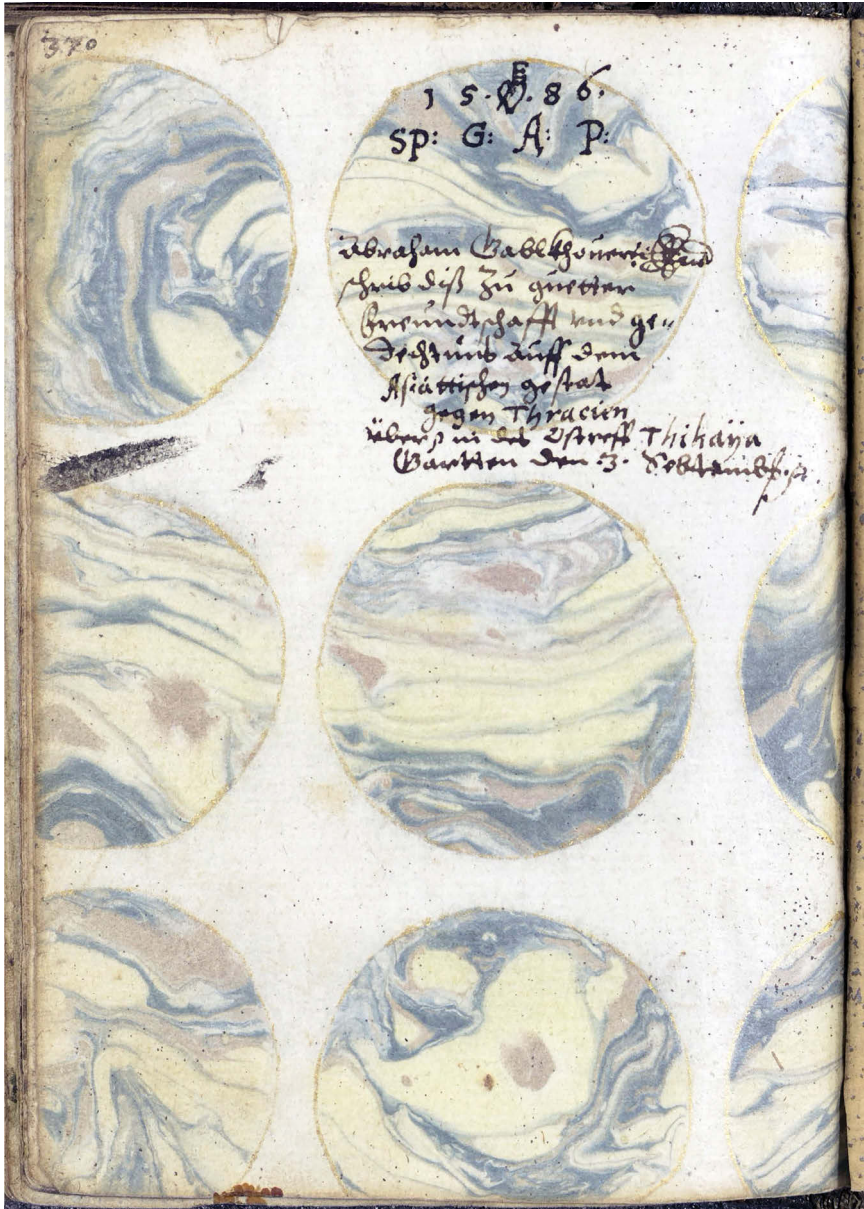 370
E
1 5 . . 8 6 .
SP: G: A: P:
Abraham Gablkhouer
schrib diß zu guetter
freundtschafft und ge-
dechtnus auff dem
Asiattischen gestat
gegen Thracien
über in des Thihaÿa
Gartten den .3. Sebtemb